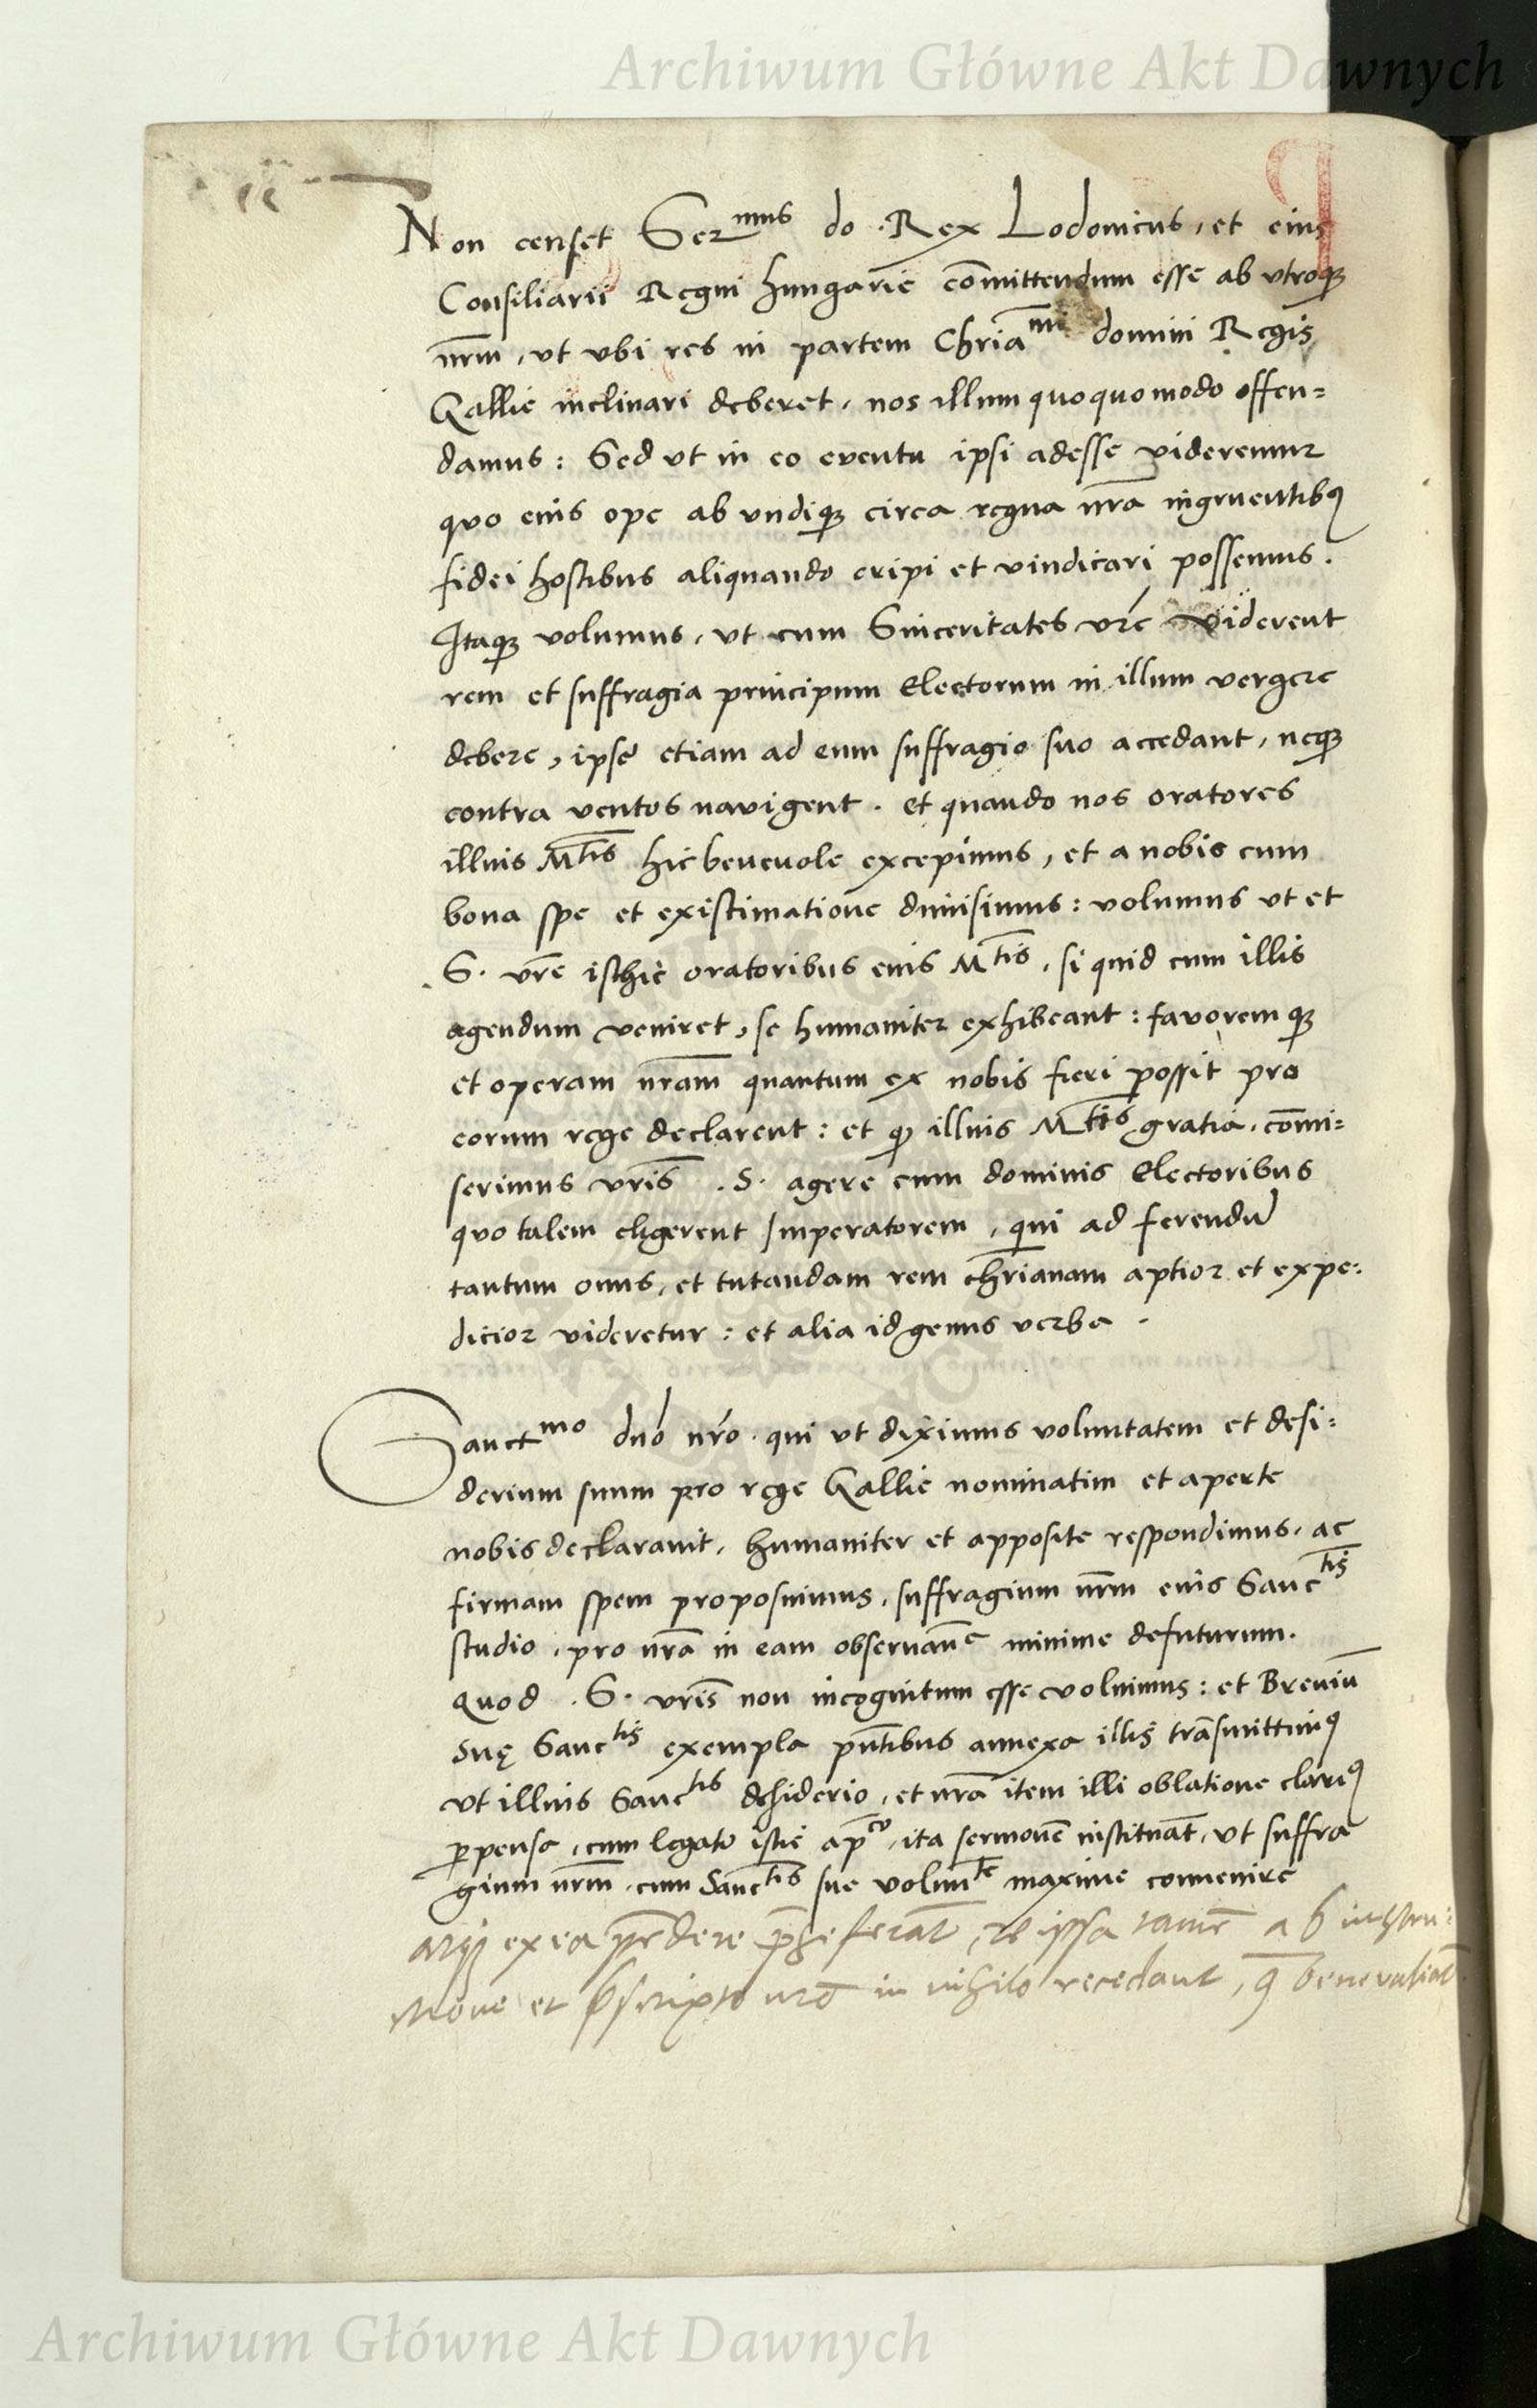 Archiwum Główne Akt Dawnych
Non censet Ser^mus do. Rex Lodovicus, et eius
Consiliarii Regni hungarie co̅mittendum esse ab vtroq̨
nr̅m, vt vbi res in partem Chria̅^mi domini Regis
Gallie inclinari deberet, nos illum quoquomodo offen=
damus: Sed vt in eo eventu ipsi adesse videremur
quo eius ope ab vndiq̨ circa regna nr̅a ingruentibꝰ
fidei hostibus aliquando eripi et vindicari possemus.
Itaq̨ volumus, vt cum Sinceritates vr̅e viderent
rem et suffragia principum Electorum in illum vergere
debere, ipsę etiam ad eum suffragio suo accedant, neq̨
contra ventos navigent. et quando nos oratores
illius M^tis hic benevole excepimus, et a nobis cum
bona spe et existimatione dimisimus: volumus ut et
S. vr̅e isthic oratoribus eius M^tis, si quid cum illis
agendum veniret, se humaniter exhibeant: favorem q̨
et operam nr̅am quantum ex nobis fieri possit pro
eorum rege declarent: et q̨ illius M^tis gratia, co̅mi=
serimus vr̅is .S. agere cum dominis Electoribus
quo talem eligerent Imperatorem, qui ad ferendu̅
tantum onus, et tutandam rem chr̅ianam aptior et expe=
ditior videretur: et alia id genus verba.
Sanct^mo dn̅o nr̅o. qui vt diximus voluntatem et desi=
derium suum pro rege Gallie nominatim et aperte
nobis declaravit, humaniter et apposite respondimus, ac
firmam spem proposuimus, suffragium nr̅m eius Sanc^tis
studio, pro nr̅a in eam observan̅^e minime defuturum.
Quod .S. vr̅is non incognitum esse voluimus: et Breviu̅
Suę Sanc^tis exempla pn̅tibus annexa illis tra̅smittimꝰ
vt illius Sanc^tis desiderio, et nr̅a item illi oblatione clariꝰ
ꝑpensa, cum legato istic ap̅^co, ita sermone̅ instituа̅t, vt suffra
gium nr̅m, cum Sanc^tis sue volun^te maxime convenire
atq̨ ex ea pe̅dere p̅se fera̅t, re ipsa tame̅ ab instru=
ctione et p̅scripto nr̅o in nihilo recedant, q̅ bene valia̅t
Archiwum Główne Akt Dawnych